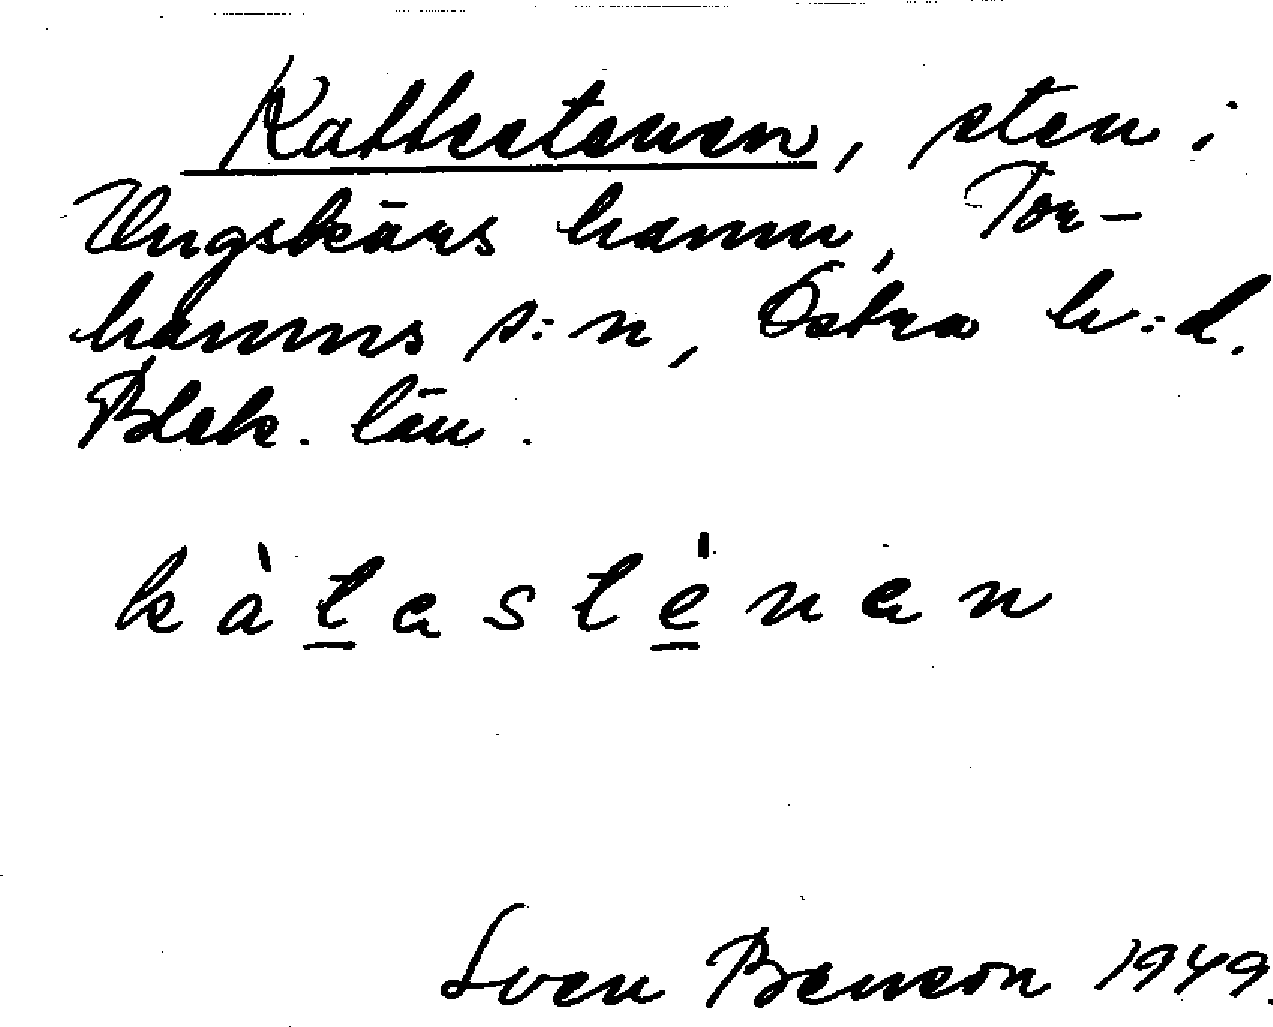 Kattestenen, sten i
Ungskärs hamn, Tor-
hamns s:n, Östra h:d.
Blek. län.
kàtasténan
Sven Benson 1949.